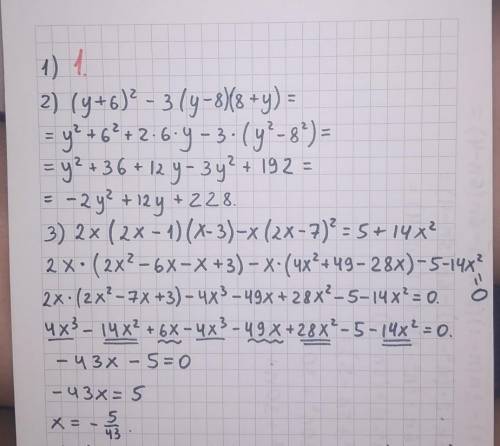 1) 1.
2) (y+6)² - 3(y-8)(8+y) =
= y² + 6² + 2·6·y - 3·(y² - 8²) =
= y² + 36 + 12y - 3y² + 192 =
= -2y² + 12y + 228.
3) 2x(2x-1)(x-3) - x(2x-7)² = 5 + 14x²
2x·(2x² - 6x - x + 3) - x·(4x² + 49 - 28x) - 5 - 14x² = 0
2x·(2x² - 7x + 3) - 4x³ - 49x + 28x² - 5 - 14x² = 0.
4x³ - 14x² + 6x - 4x³ - 49x + 28x² - 5 - 14x² = 0.
-43x - 5 = 0
-43x = 5
x = -5/43.